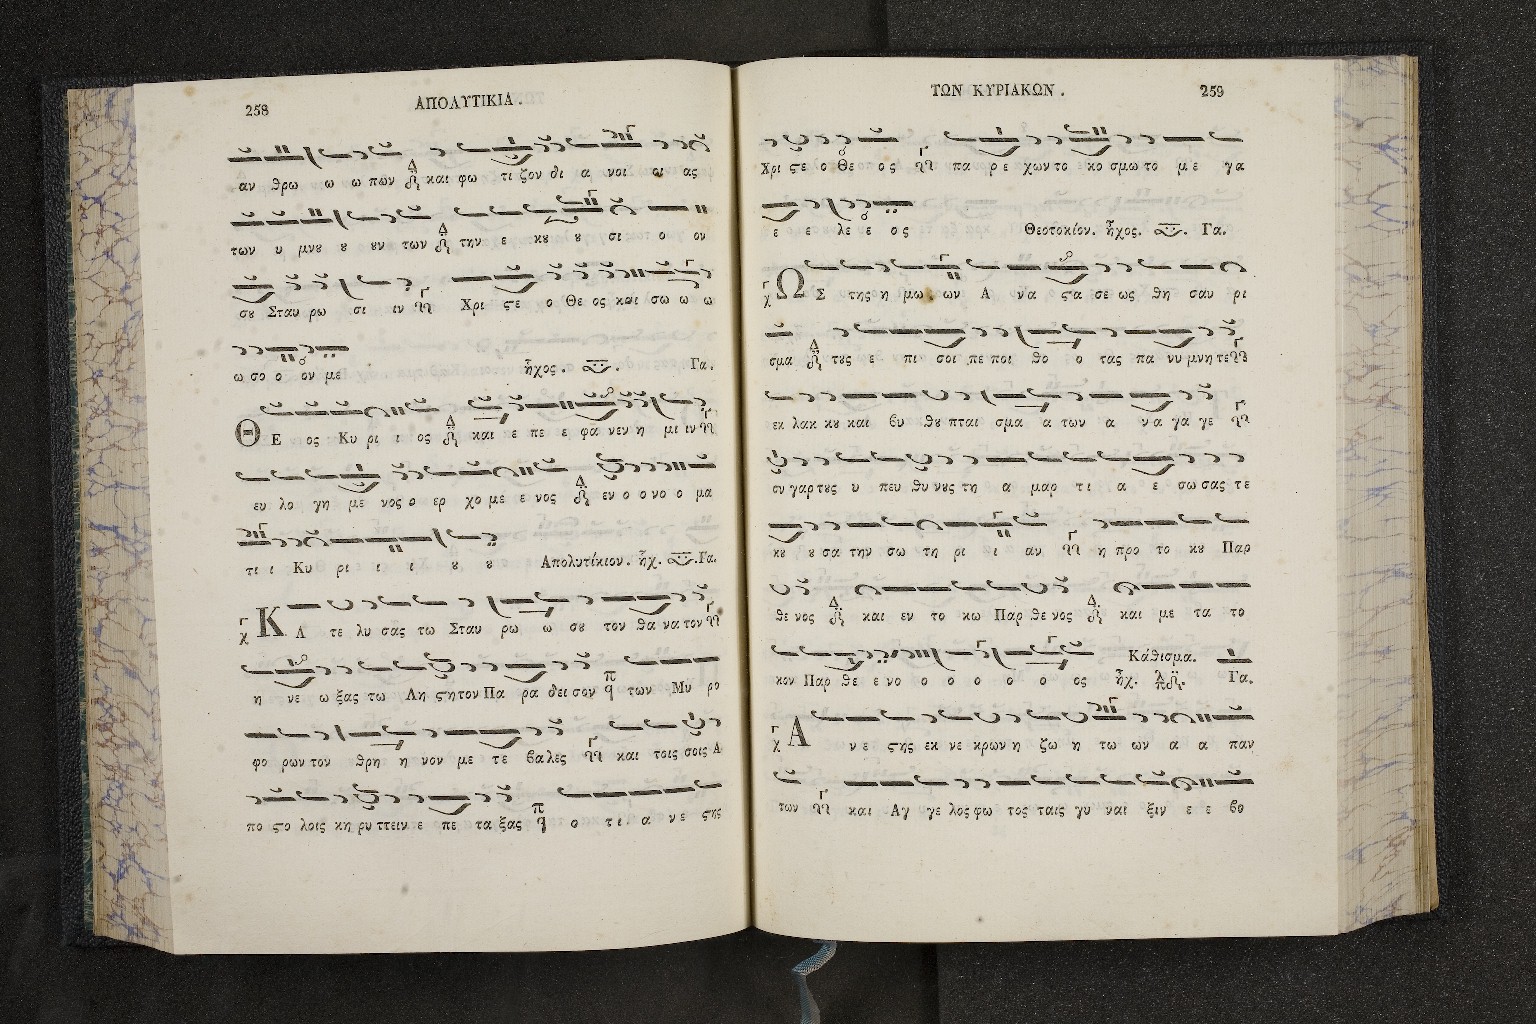 258 ΑΠΟΛΥΤΙΚΙΑ.
αν θρω ω ω πων και φω τι ζον δι α νοι οι ας
των υ μνου ου ουν των την ε κου ου σι ο ον
σου Σταυ ρω σι ιν Χρι ϛε ο Θε ος και σω ω ω
ω σο ο ον με ἦχος. Γα.
Θ Ε ος Κυ ρι ι ος και ε πε ε φα νεν η μι ιν
ευ λο γη με νος ο ερ χο με ε νος εν ο ο νο ο μα
τι ι Κυ ρι ι ι ου ου Απολυτίκιον. ἦχ. Γα.
Κ Α τε λυ σας τω Σταυ ρω ω σου τον θα να τον
η νε ω ξας τω Λη ϛη τον Πα ρα δει σον των Μυ ρο
φο ρων τον θρη η νον με τε βα λες και τοις σοις Α
πο ϛο λοις κη ρυ ττειν ε πε τα ξας ο τι α νε ϛης
ΤΩΝ ΚΥΡΙΑΚΩΝ. 259
Χρι ϛε ο Θε ος πα ρε χων το κο σμω το με γα
ε ε λε ε ος Θεοτοκίον. ἦχος. Γα.
Ω Σ της η μω ων Α να ϛα σε ως θη σαυ ρι
σμα τους ε πι σοι πε ποι θο ο τας πα νυ μνη τε
εκ λακ κου και βυ θου πται σμα α των α να γα γε
συ γαρ τους υ πευ θυ νους τη α μαρ τι α ε σω σας τε
κου ου σα την σω τη ρι ι αν η προ το κου Παρ
θε νος και εν το κω Παρ θε νος και με τα το
κον Παρ θε ε νο ο ο ο ο ο ος ἦχ. Κάθισμα. Γα.
Α νε ϛης εκ νε κρων η ζω η τω ων α α παν
των και Αγ γε λος φω τος ταις γυ ναι ξιν ε ε βο